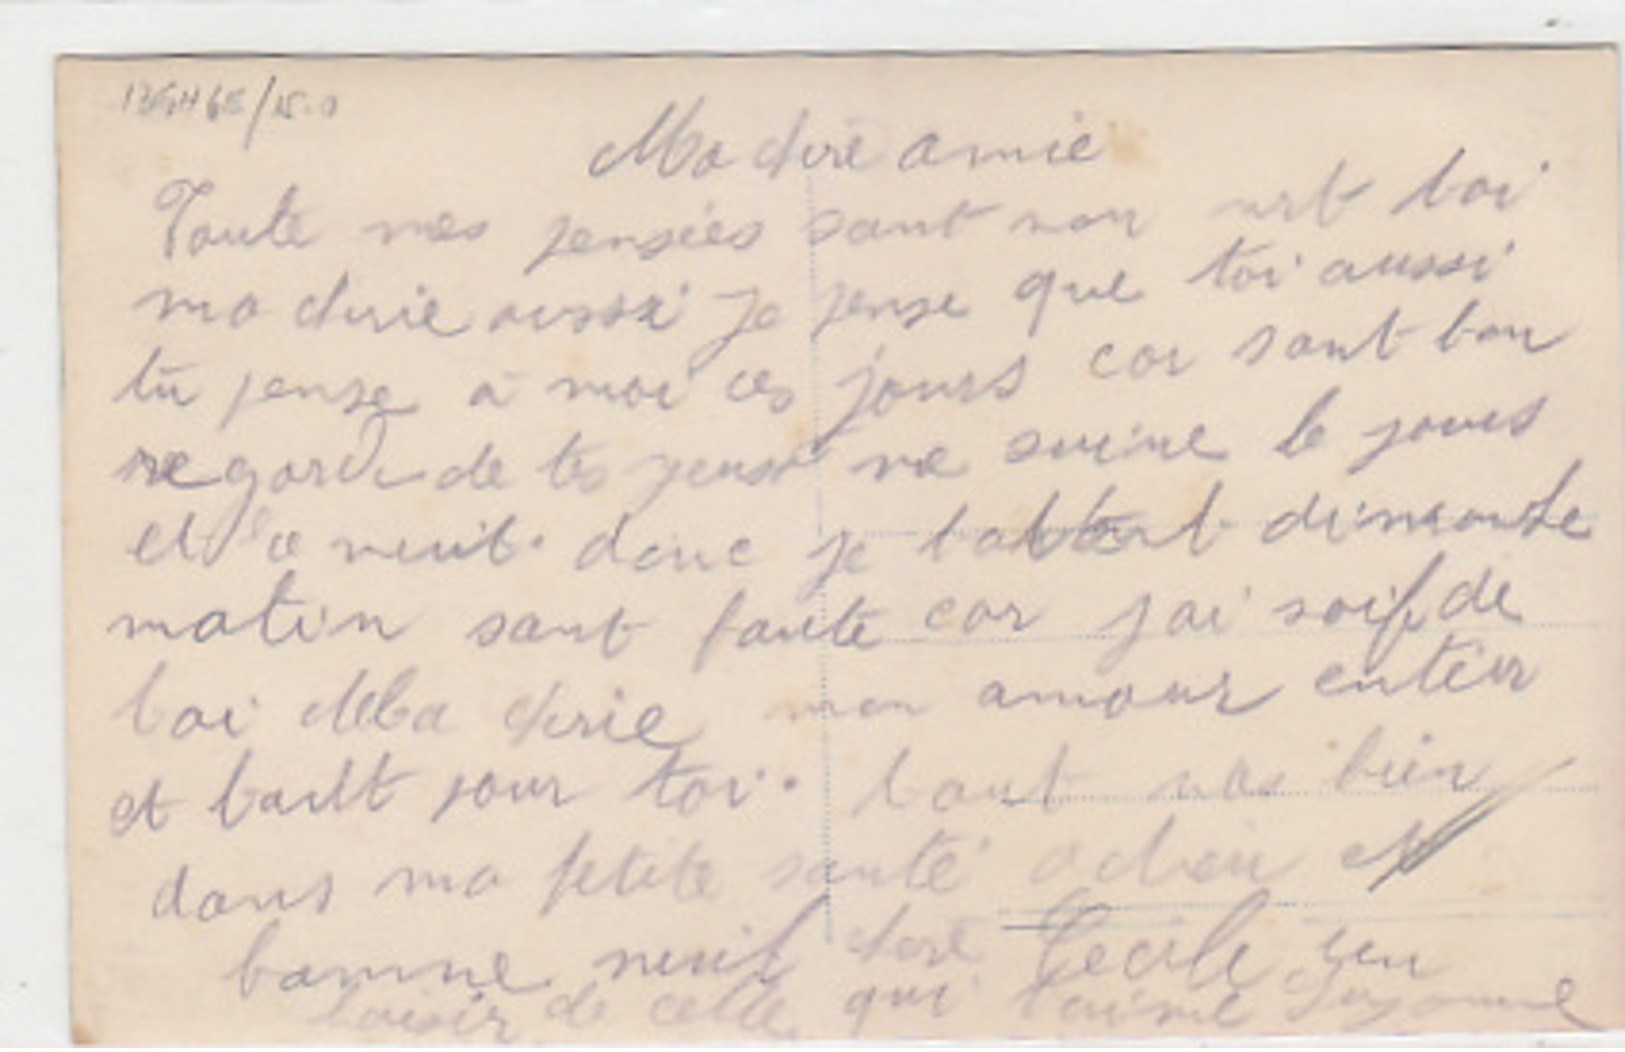 Ma chere amie
Toute mes pensées sont toi
ma cherie aussi je pense que toi aussi
tu pense a moi ces jours car sont bon
regard de tes yeux me suive le jours
et la nuit. donc je dimanche
matin sant faute car jai soif de
toi Ma cherie mon amour entier
et pour toi. tout vas bien
dans ma petite santé adieu et
bonne nuit chere Cecile un
baisir de celle qui t'aime Suzanne